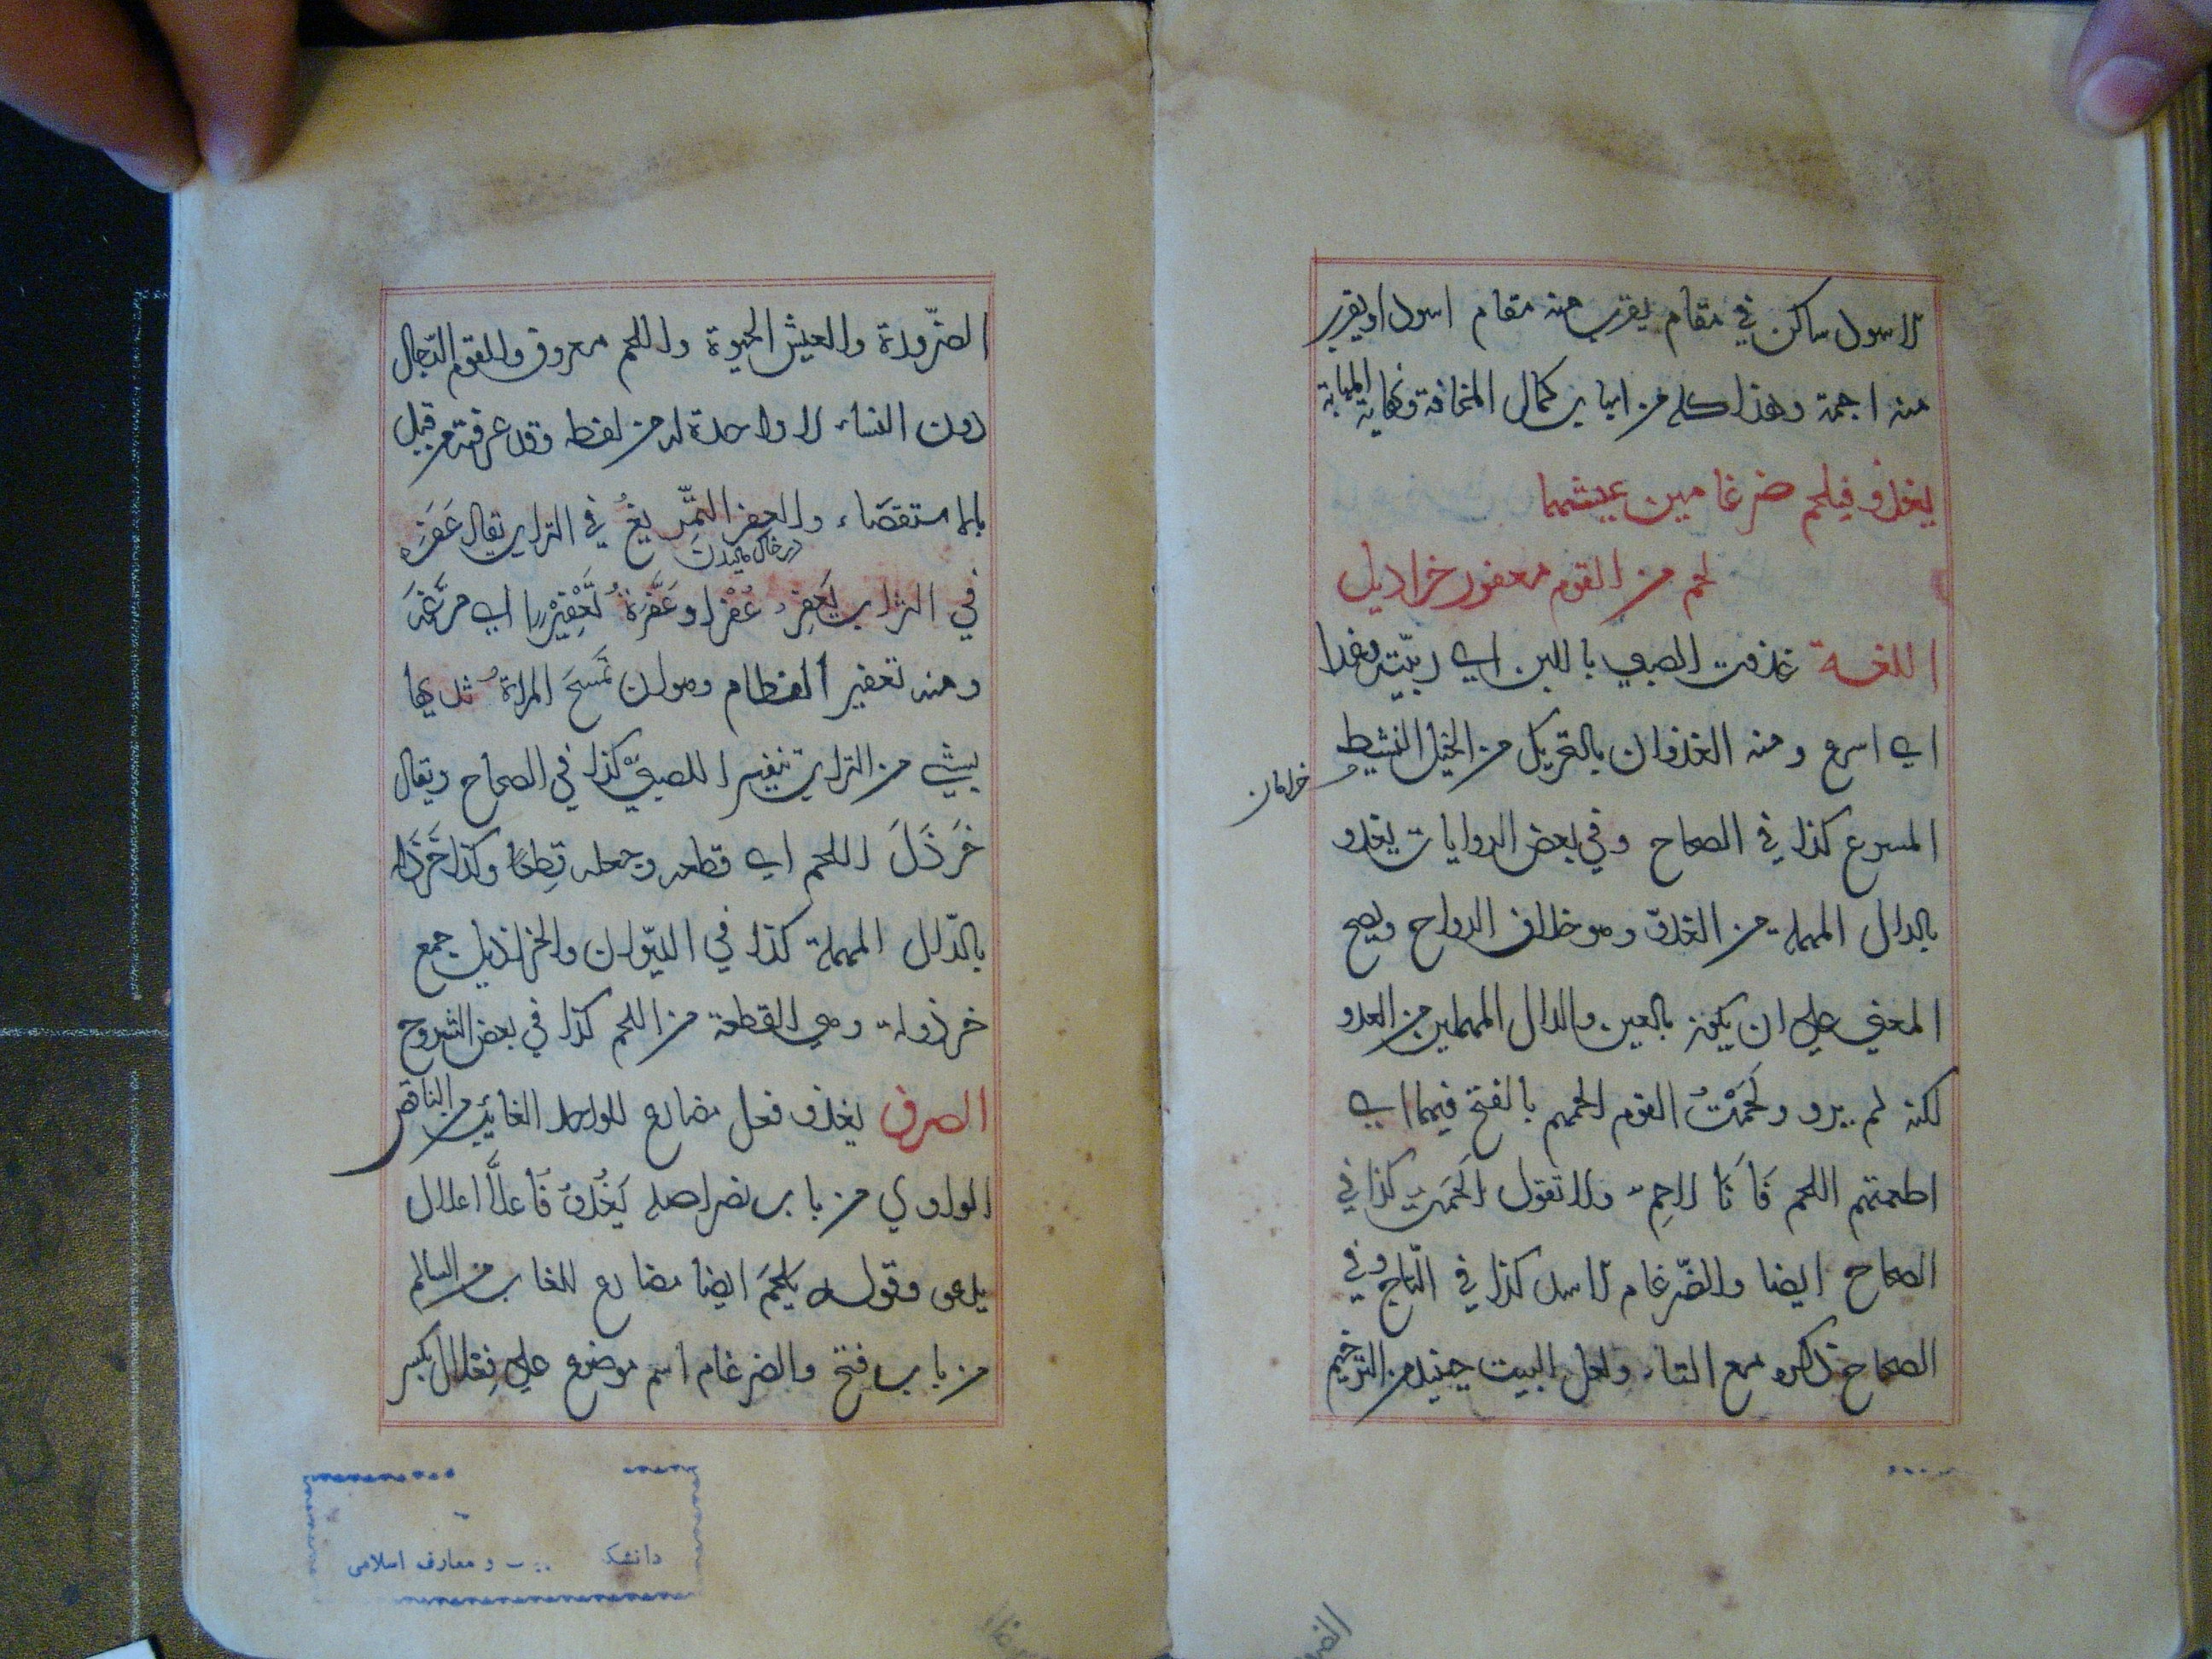 لاسود ساكن في مقام يقرب منه مقام اسود او يقرب
منه اجمة وهذا كله من اسباب كمال المخافة ونهاية المهابة
يغذو فيلحم ضرغامين عيشهما
لحم من القوم معفور خراديل
اللغة غذوت الصبي باللبن اي ربيته وغذا
اي اسرع ومنه الغذوان بالتحريك من الخيل النشيط
خرامان
المسرع كذا في الصحاح وفي بعض الروايات يغدو
بالدال المهملة من الغدوّ وهو خلاف الرواح ويصح
المعنى على ان يكون بالعين والدال المهملين من العدو
لكنه لم يرو ولَحَمْتُ القوم الحمهم بالفتح فيهما اي
اطعمتهم اللحم فَاَنَا لاحِم ولا تقول اَلحَمت كذا في
الصحاح ايضا والضّرغام لاسد كذا في التاج وفي
الصحاح ذكره مع التاء ولعل البيت حينئذ من الترخيم
الضرو
الضّرورة والعيش الحيوة واللحم معروف والقوم الرّجال
دون النساء لا واحدة له من لفظه وقد عرفته من قبل
بالاستقصاء والعفر التمّريغُ في التراب يقال عَفَرَه
در خاك ماليدن
في التراب يَعفِر عُفْرا وعَفَّرَهُ تَعْفِيْرا اي مرَّغَه
ومنه تعفير الفطام وهو ان تَمسَحَ المراةُ ثديها
بشيء من التراب تنفيرا للصبيّ كذا في الصحاح ويقال
خَرذَلَ اللحم اي قطعه وجعله قِطعًا وكذا خَرْدَل
بالدّال المهملة كذا في الديوان والخراذيل جمع
خرذولة وهي القطعة من اللحم كذا في بعض الشروح
الصرف يغذو فعل مضارع للواحد الغائب من الناقص
الواوي من باب نصر اصله يَغْذُوُ فَاُعلَّ اعلال
يدعو وقوله يَلحَم ايضا مضارع للغاب من السالم
من باب فتح والضرغام اسم موضوع على فِعْلال بكسر
دانشك ت و معارف اسلامى